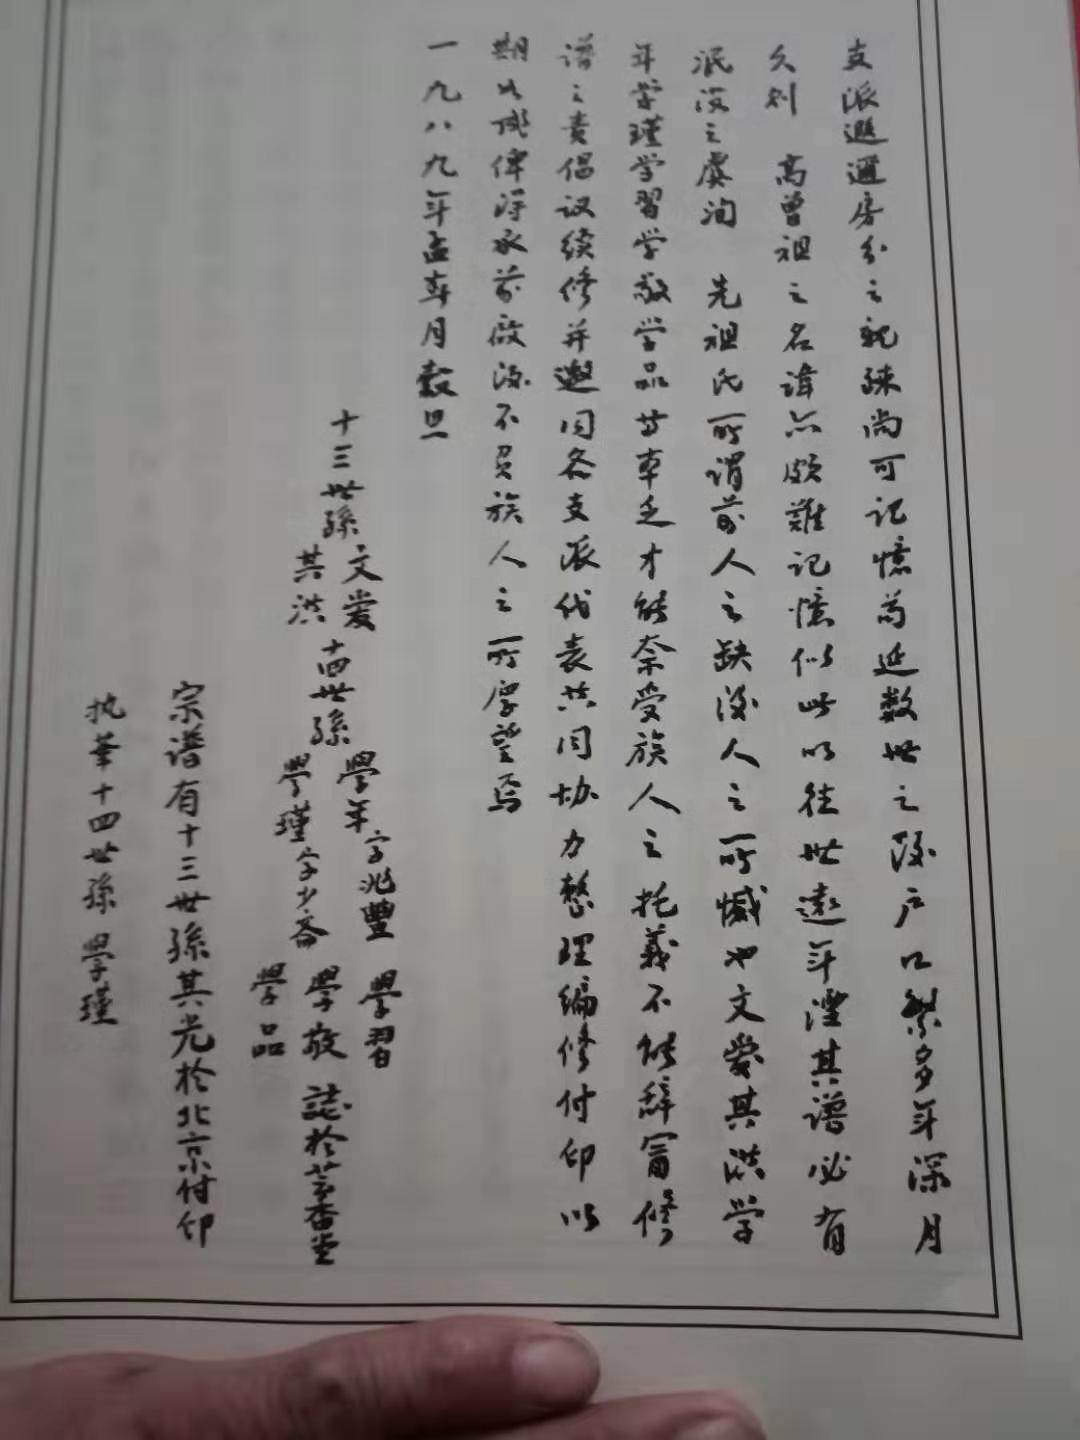 支派遐邇房分之親疎尚可記憶苟延数世之後户口繁多年深月
久則 高曾祖之名諱亦頗難記憶似此以往世遠年湮其譜必有
泯没之虞洵 先祖氏所谓前人之缺後人之所憾也文爱其洪学
年学瑾学習学敬学品等率乏才能奈受族人之托義不能辭寅修
谱之责倡议续修并邀同各支派代表共同协力整理编修付印以
期必成俾得承前啟後不負族人之所厚望焉
一九八九年孟春月穀旦
十三世孫 文爱 其洪
十四世孫 學年字兆豐 學瑾字少斋 學習 學敬 學品 誌於香堂
宗谱有十三世孫其光於北京付印
执筆十四世孫 學瑾